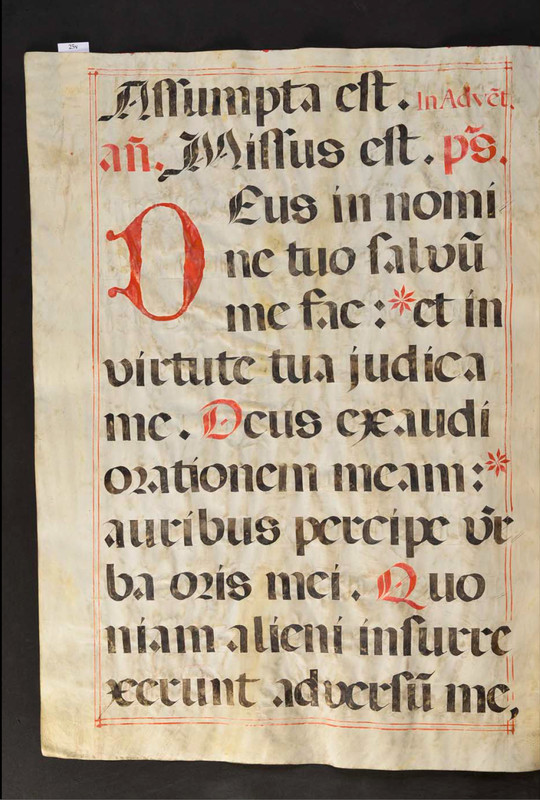 234
Aſſumpta eſt. In Advẽt.
añ. Miſſus eſt. pš.
DEus in nomi
ne tuo ſalvũ
me fac :* et in
virtute tua judica
me. Deus exaudi
orationem meam :*
auribus percipe v̄r
ba oris mei. Quo
niam alieni inſurre
xerunt adverſũ me,